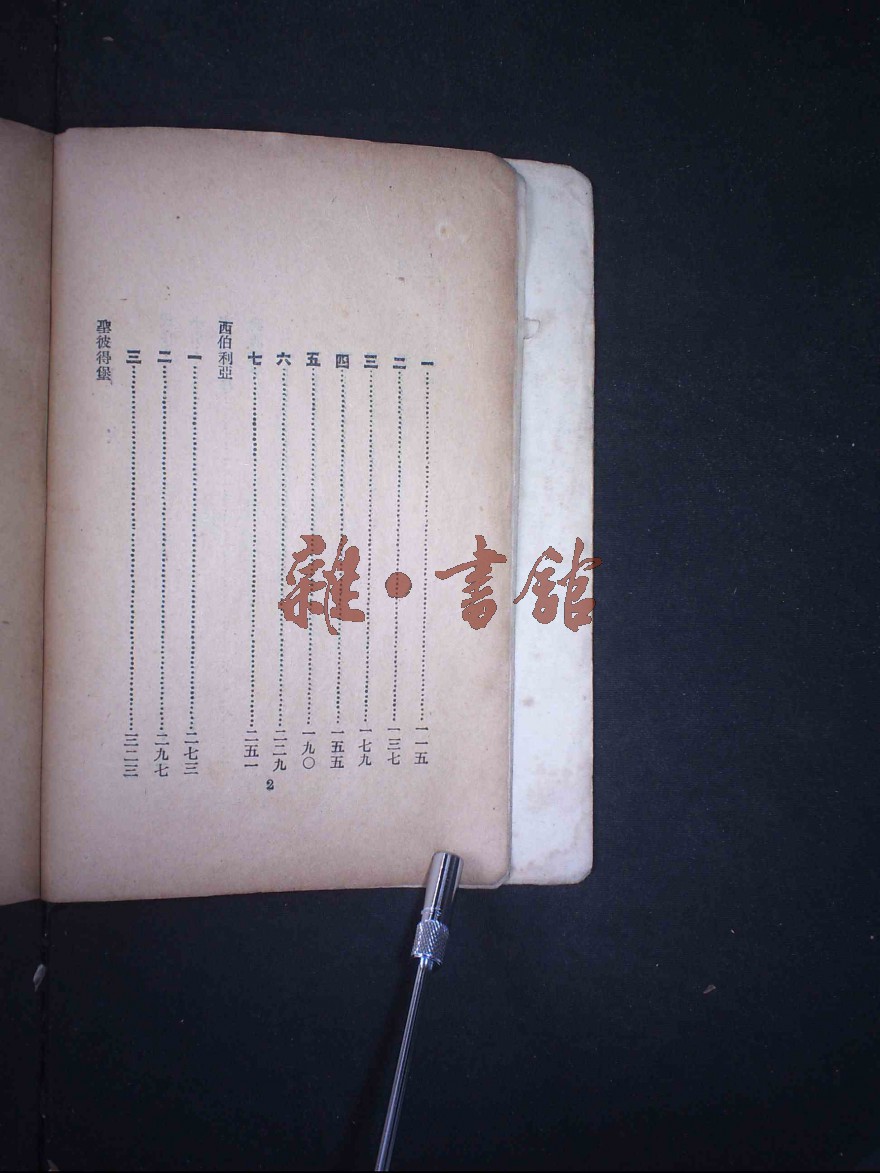 一……一一五
二……一三七
三……一七九
四……一五五
五……一九〇
六……二二九
七……二五一
西伯利亞
一……二七三
二……二九七
三……三二三
聖彼得堡
2
雜·書館